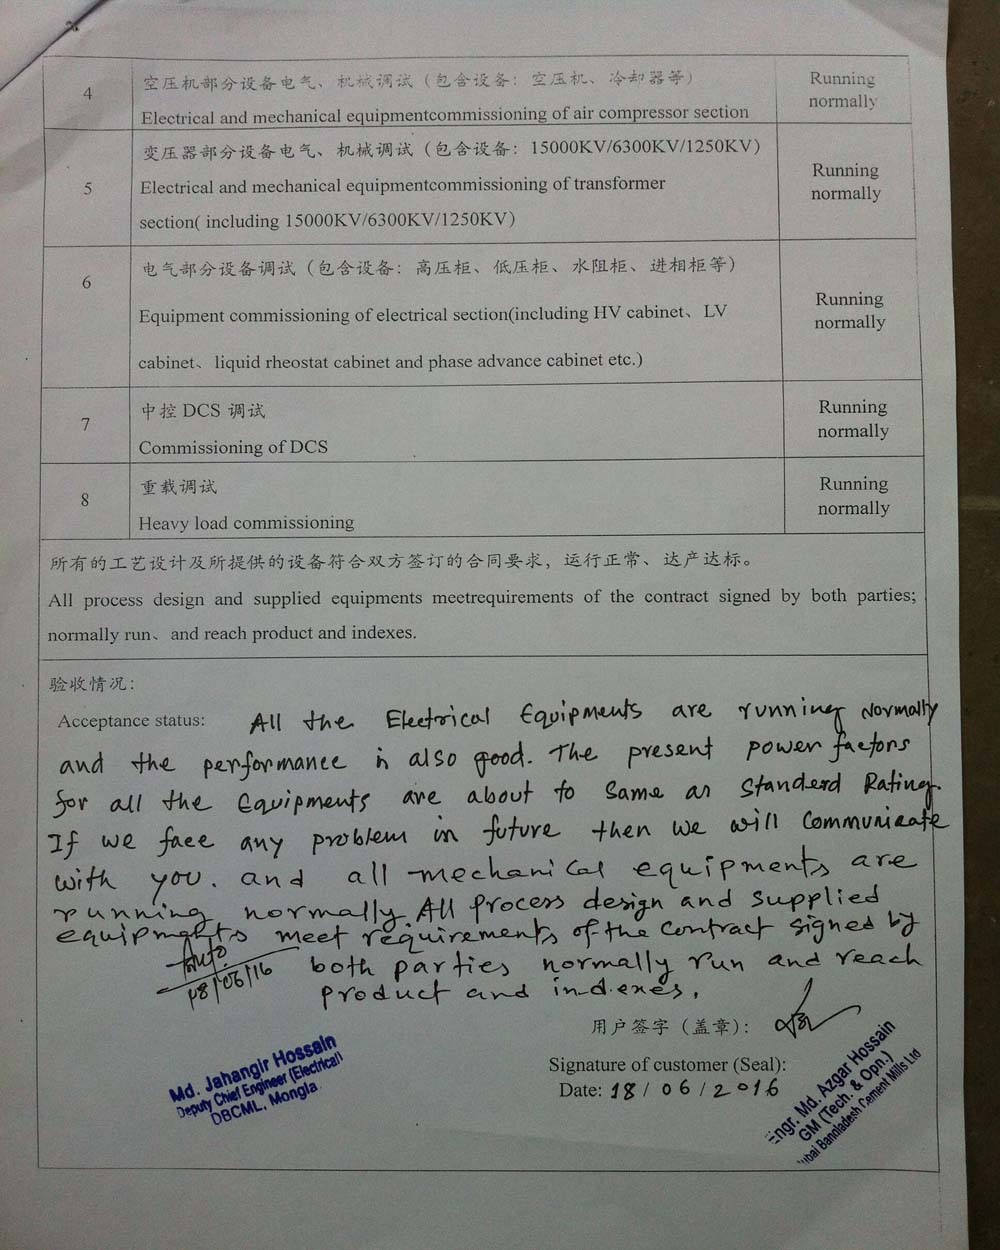 4
空压机部分设备电气、机械调试（包含设备：空压机、冷却器等）
Electrical and mechanical equipmentcommissioning of air compressor section
Running
normally
5
变压器部分设备电气、机械调试（包含设备：15000KV/6300KV/1250KV）
Electrical and mechanical equipmentcommissioning of transformer
section( including 15000KV/6300KV/1250KV）
Running
normally
6
电气部分设备调试（包含设备：高压柜、低压柜、水阻柜、进相柜等）
Equipment commissioning of electrical section(including HV cabinet、LV
cabinet、liquid rheostat cabinet and phase advance cabinet etc.)
Running
normally
7
中控 DCS 调试
Commissioning of DCS
Running
normally
8
重载调试
Heavy load commissioning
Running
normally
所有的工艺设计及所提供的设备符合双方签订的合同要求，运行正常、达产达标。
All process design and supplied equipments meetrequirements of the contract signed by both parties;
normally run、and reach product and indexes.
验收情况：
Acceptance status: All the Electrical Equipments are running Normally
and the performance is also good. The present power factors
for all the Equipments are about to same as Standerd Rating.
If we face any problem in future then we will communicate
with you. and all mechanical equipments are
running normally. All process design and supplied
equipments meet requirements of the contract signed by
both parties normally run and reach
product and indexes.
18/06/16
用户签字（盖章）：
Signature of customer (Seal):
Date: 18/06/2016
Md. Jahangir Hossain
Deputy Chief Engineer (Electrical)
DBCML, Mongla
Engr. Md. Azgar Hossain
GM (Tech. & Opn.)
Bangladesh Cement Mills Ltd